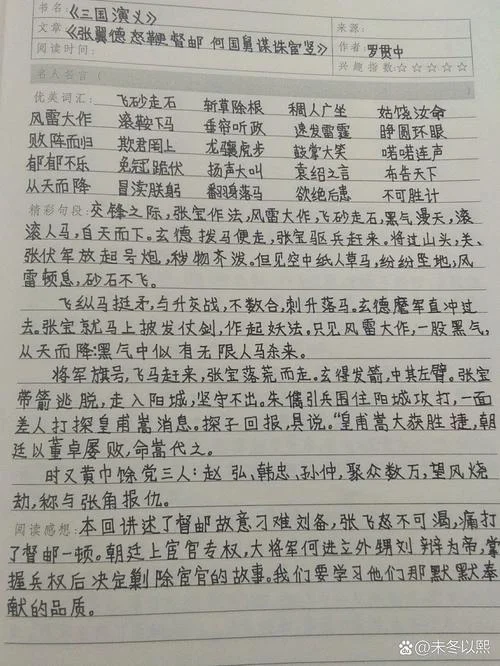 书名:《三国演义》
文章《张翼德怒鞭督邮 何国舅谋诛宦竖》
来源:
阅读时间:
作者:罗贯中
兴趣指数:☆☆☆☆☆
名人名言(
优美词汇: 飞砂走石 斩草除根 稠人广坐 姑饶汝命
风雷大作 滚鞍下马 垂帘听政 速发雷霆 睁圆环眼
败阵而归 欺君罔上 龙骧虎步 鼓掌大笑 喏喏连声
郁郁不乐 免冠跪伏 扬声大叫 袁绍之言 布告天下
从天而降 冒渎朕躬 翻身落马 欲绝后患 不可胜计
精彩句段:交锋之际,张宝作法,风雷大作,飞砂走石,黑气漫天,滚
滚人马,自天而下。玄德拨马便走,张宝驱兵赶来。将过山头,关、
张伏军放起号炮,秽物齐泼。但见空中纸人草马,纷纷坠地,风
雷顿息,砂石不飞。
飞纵马挺矛,与升交战,不数合,刺升落马。玄德麾军直冲过
去。张宝就马上披发仗剑,作起妖法。只见风雷大作,一股黑气,
从天而降:黑气中似有无限人马杀来。
将军旗号,飞马赶来,张宝落荒而走。玄得发箭,中其左臂。张宝
带箭逃脱,走入阳城,坚守不出。朱儁引兵围住阳城攻打,一面
差人打探皇甫嵩消息。探子回报,具说。“皇甫嵩大获胜捷,朝
廷以董卓屡败,命嵩代之。
时又黄巾馀党三人:赵弘、韩忠、孙仲,聚众数万,望风烧
劫,称与张角报仇。
阅读感想:本回讲述了督邮故意刁难刘备,张飞怒不可渴,痛打
了督邮一顿。朝廷上宦官专权,大将军何进立外甥刘辩为帝,掌
握兵权后决定剿除宦官的故事。我们要学习他们那默默奉
献的品质。
百家号/未冬以熙